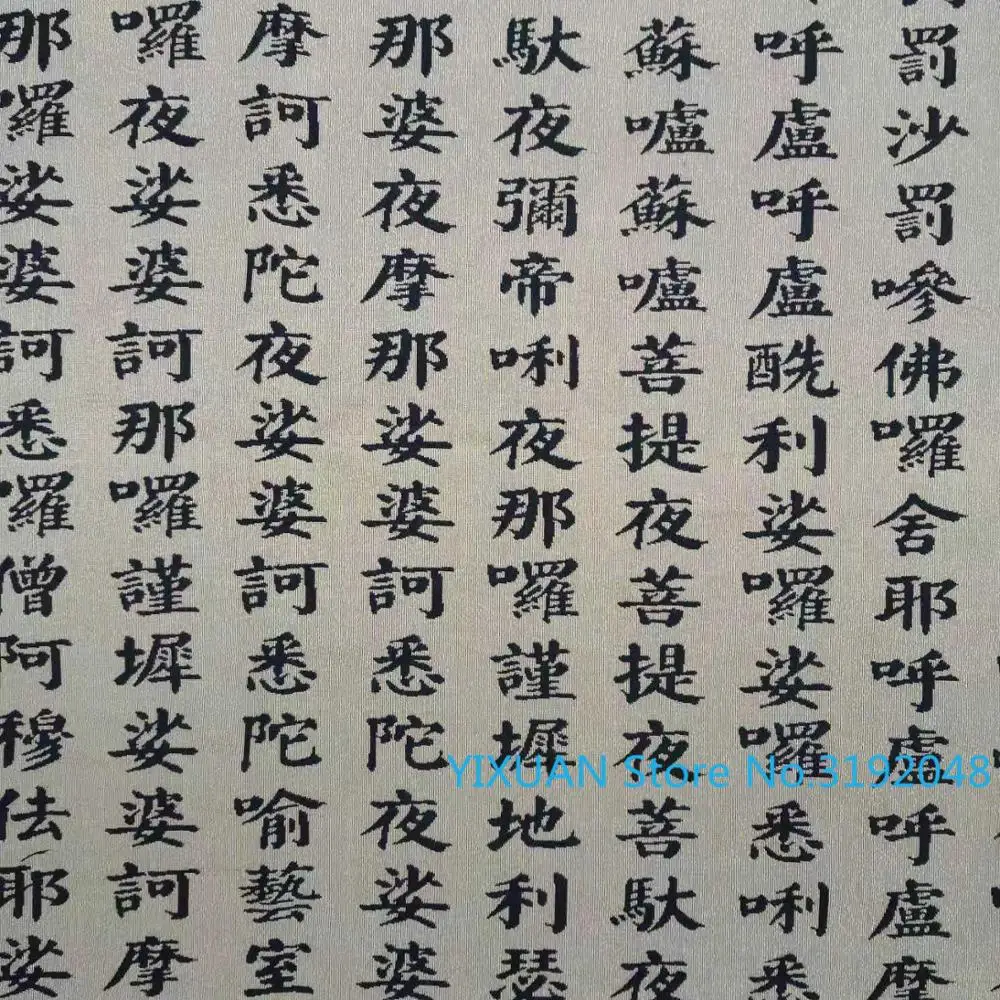 罰沙罰嘇佛囉舍耶呼盧呼盧摩
呼盧呼盧酰利娑囉娑囉悉唎悉
蘇嚧蘇嚧菩提夜菩提夜菩馱夜
馱夜彌帝唎夜那囉謹墀地利瑟
那婆夜摩那娑婆訶悉陀夜娑婆
摩訶悉陀夜娑婆訶悉陀喻藝室
囉夜娑婆訶那囉謹墀娑婆訶摩
那囉娑婆訶悉囉僧阿穆佉耶娑
YIXUAN Store No.3192048